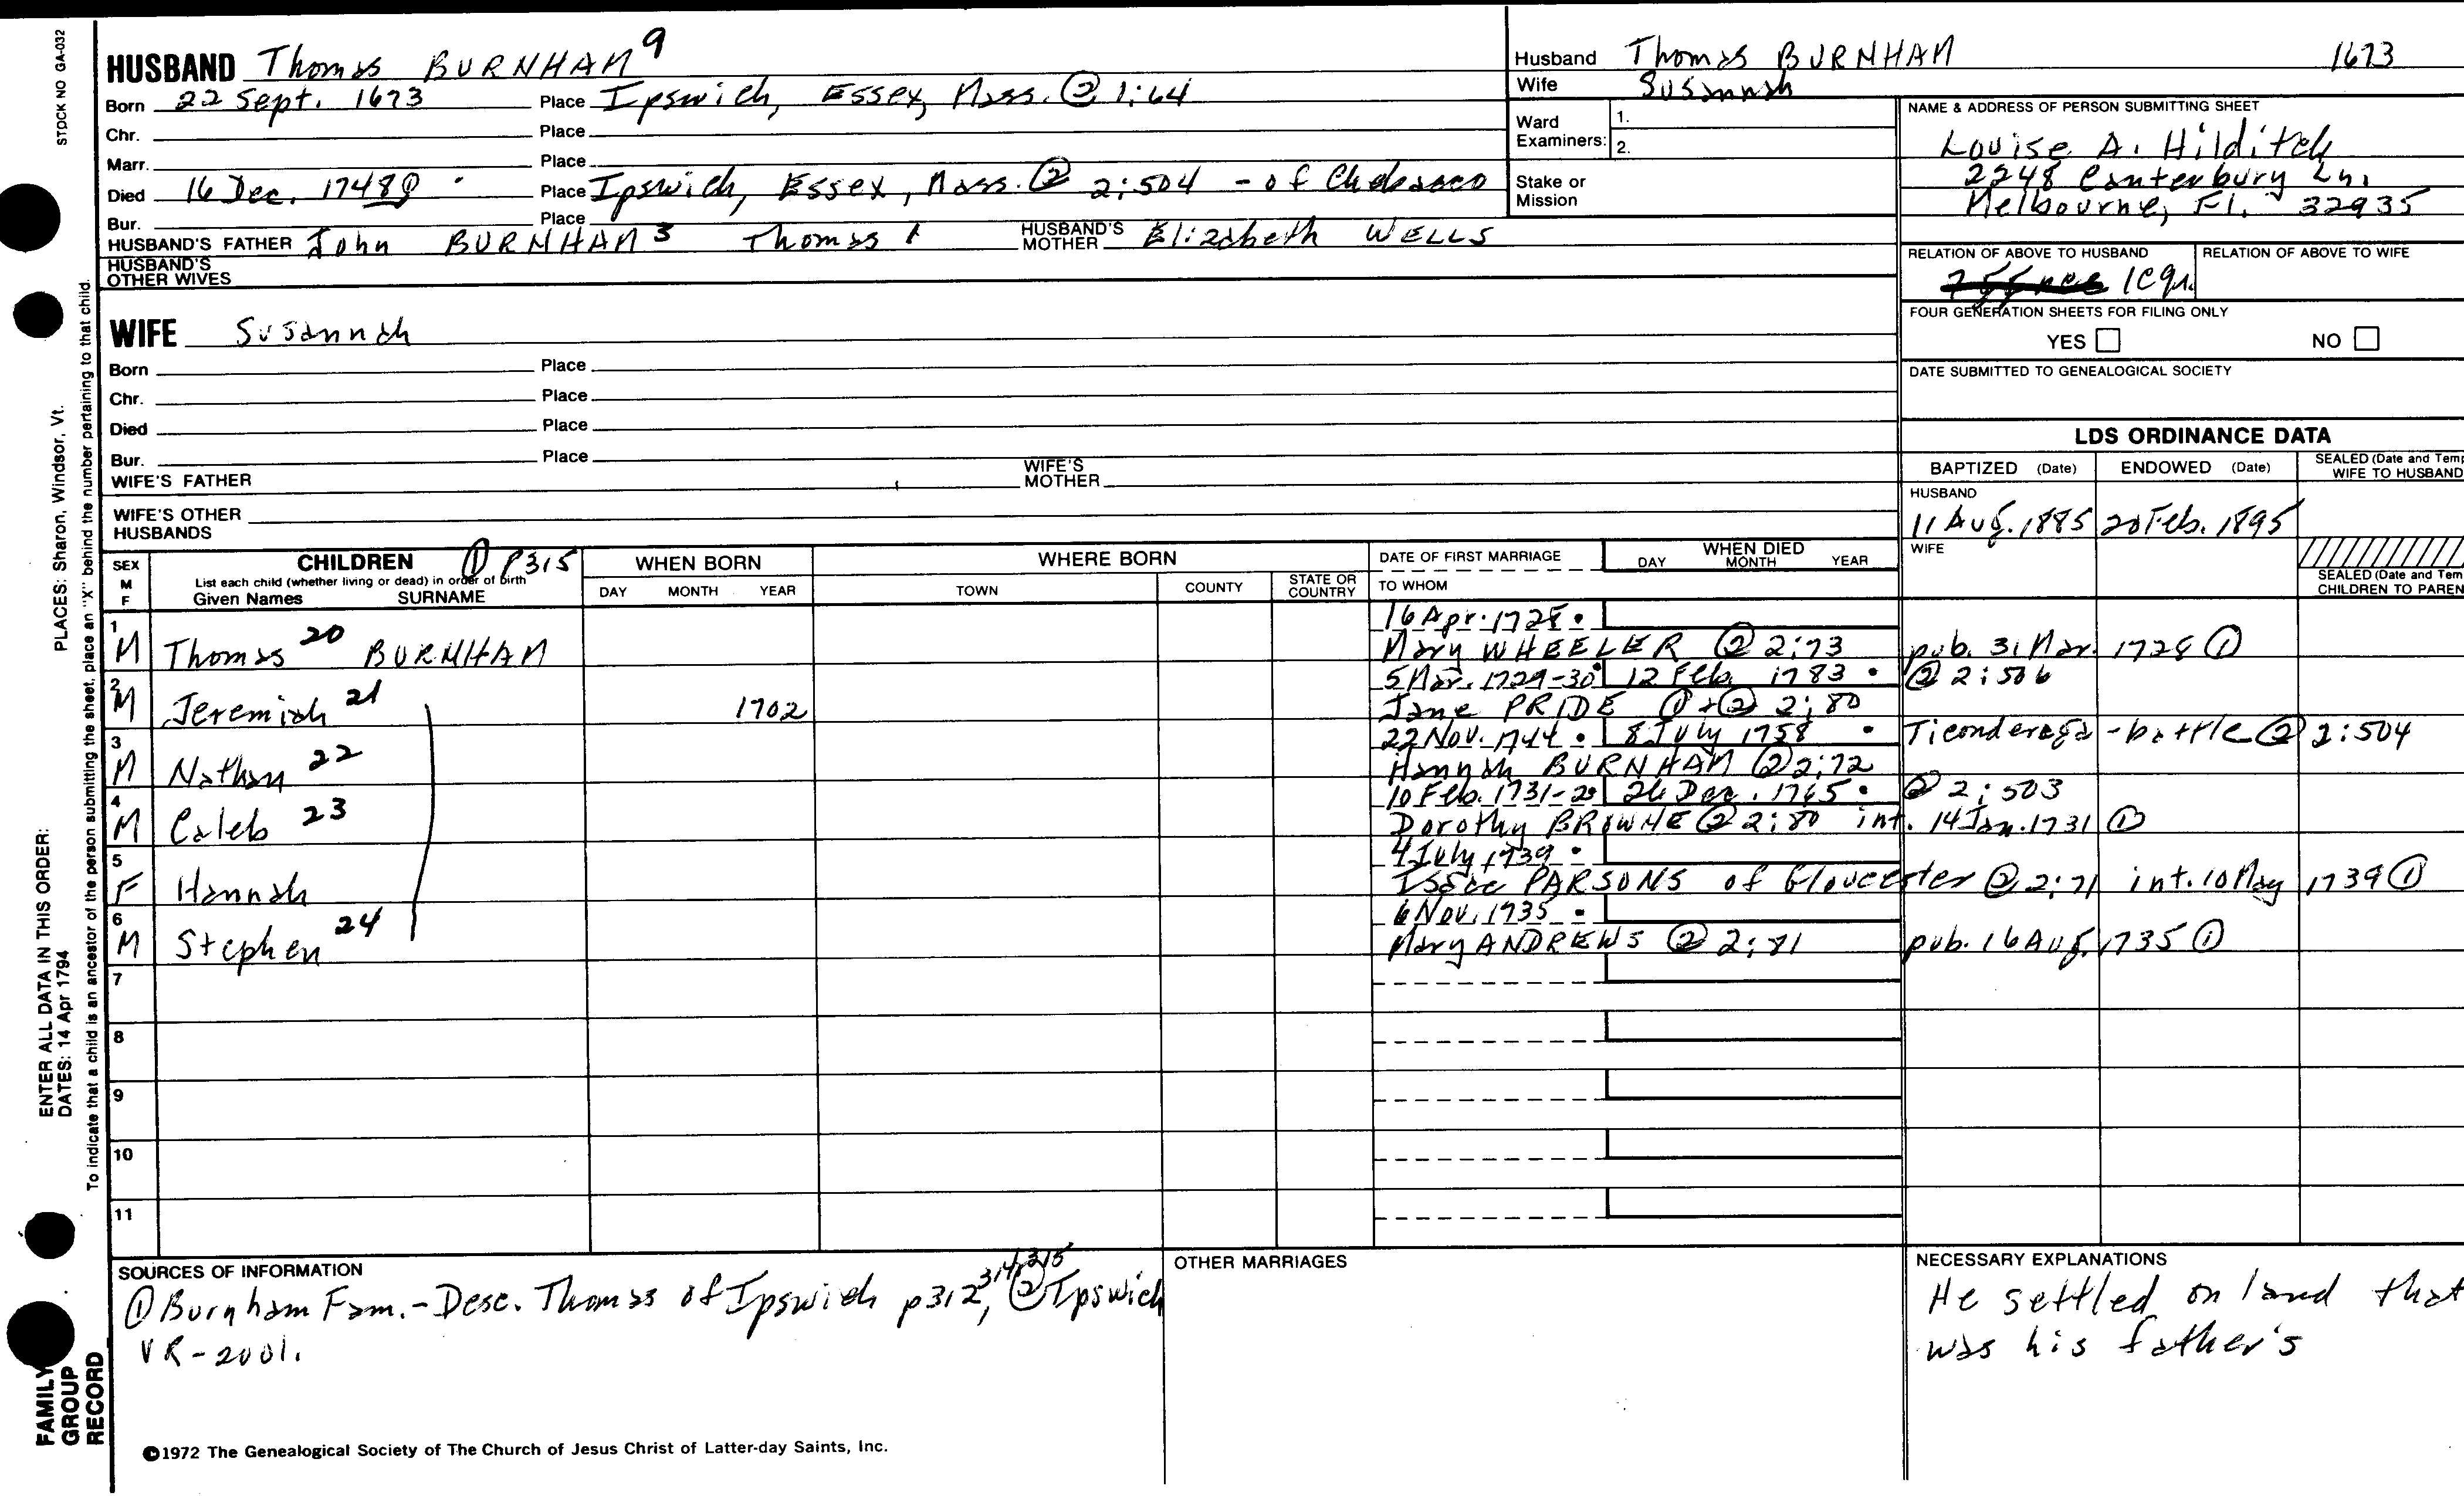 STOCK NO GA-032
HUSBAND Thomas BURNHAM 9
Born 22 Sept. 1673 Place Ipswich, Essex, Mass. ② 1:64
Chr. Place
Marr. Place
Died 16 Dec. 1748 Place Ipswich, Essex, Mass. ② 2:504 - of Chebacco
Bur. Place
HUSBAND'S FATHER John BURNHAM 3 Thomas 1 HUSBAND'S MOTHER Elizabeth WELLS
HUSBAND'S OTHER WIVES
Husband Thomas BURNHAM 1673
Wife Susannah
Ward Examiners: 1.
2.
Stake or Mission
NAME & ADDRESS OF PERSON SUBMITTING SHEET
Louise A. Hilditch
2248 Canterbury Ln.
Melbourne, Fl. 32935
RELATION OF ABOVE TO HUSBAND RELATION OF ABOVE TO WIFE
FOUR GENERATION SHEETS FOR FILING ONLY
YES NO
DATE SUBMITTED TO GENEALOGICAL SOCIETY
WIFE Susannah
Born Place
Chr. Place
Died Place
Bur. Place
WIFE'S FATHER WIFE'S MOTHER
WIFE'S OTHER HUSBANDS
LDS ORDINANCE DATA
BAPTIZED (Date) ENDOWED (Date) SEALED (Date and Temp WIFE TO HUSBAND
HUSBAND
11 Aug. 1885 20 Feb. 1895
WIFE
SEALED (Date and Tem CHILDREN TO PAREN
SEX M F CHILDREN ① p315 WHEN BORN WHERE BORN DATE OF FIRST MARRIAGE WHEN DIED
List each child (whether living or dead) in order of birth
Given Names SURNAME DAY MONTH YEAR TOWN COUNTY STATE OR COUNTRY TO WHOM DAY MONTH YEAR
16 Apr. 1728 •
1 M Thomas 20 BURNHAM Mary WHEELER ② 2:73 pub. 31 Mar. 1728 ①
5 Mar. 1729-30 12 Feb. 1783 • ② 2:506
2 M Jeremiah 21 1702 Jane PRIDE ① + ② 2:80
22 Nov. 1744 • 8 July 1758 • Ticonderoga - battle ② 2:504
3 M Nathan 22 Hannah BURNHAM ② 2:72
10 Feb. 1731-2 26 Dec. 1765 • ② 2:503
4 M Caleb 23 Dorothy BROWNE ② 2:80 int. 14 Jan. 1731 ①
4 July 1739 •
5 F Hannah Isaac PARSONS of Gloucester ② 2:71 int. 10 May 1739 ①
6 Nov. 1735 •
6 M Stephen 24 Mary ANDREWS ② 2:81 pub. 16 Aug. 1735 ①
7
8
9
10
11
SOURCES OF INFORMATION
① Burnham Fam. - Desc. Thomas of Ipswich p312, 314, 315 ② Ipswich
VR - 2001.
OTHER MARRIAGES
NECESSARY EXPLANATIONS
He settled on land that
was his father's
©1972 The Genealogical Society of The Church of Jesus Christ of Latter-day Saints, Inc.
FAMILY GROUP RECORD
ENTER ALL DATA IN THIS ORDER:
DATES: 14 Apr 1794
PLACES: Sharon, Windsor, Vt.
To indicate that a child is an ancestor of the person submitting the sheet, place an "X" behind the number pertaining to that child.